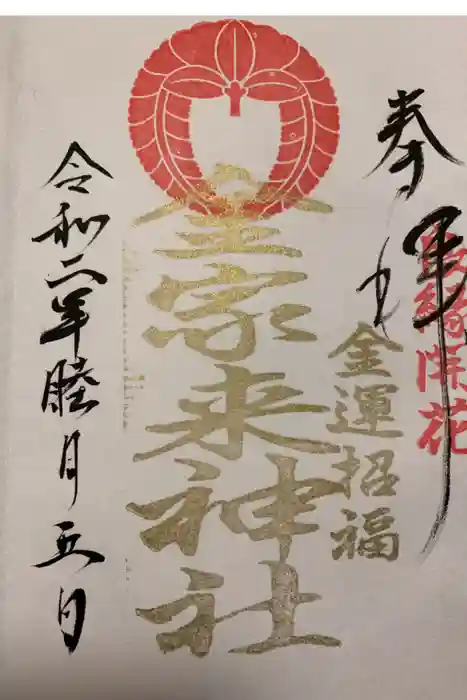 奉拝
縁開花
金運招福
金家来神社
令和二年睦月五日